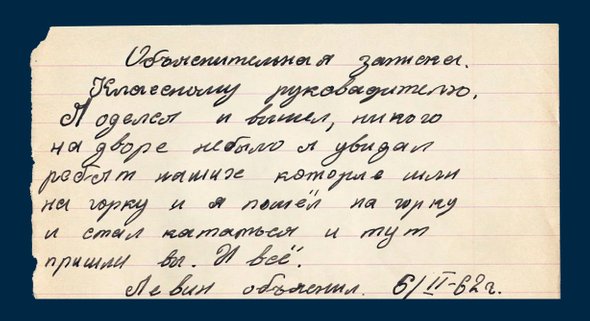 Объяснительная записка.
Классному руководителю.
Я оделся и вышел, никого
на дворе небыло я увидал
ребят наших которые шли
на горку и я пошёл на горку
и стал кататься и тут
пришли вы. И всё.
Левин объяснил. 6/II-62г.